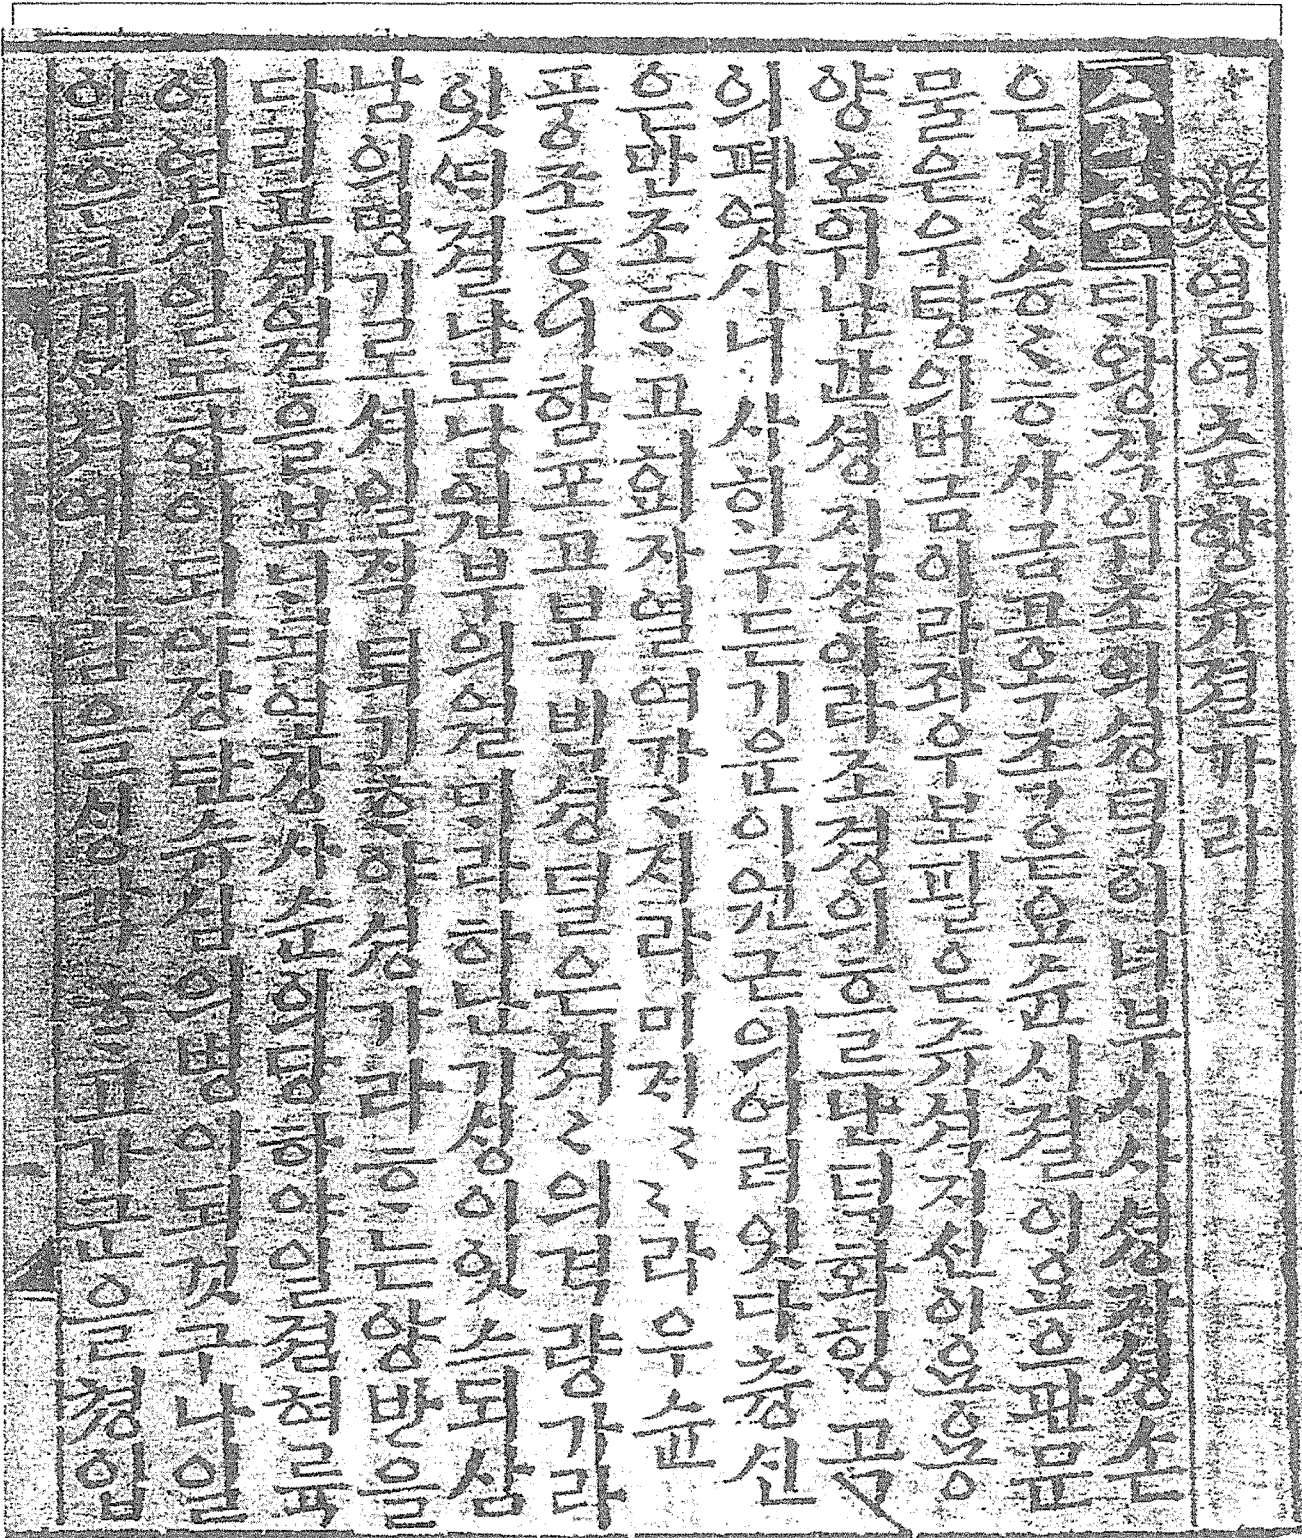 열여츈향슈졀가라
슉종ᄃᆡ왕직위초의셩덕이너부시사셩자셩손
은계〻승〻ᄒᆞ사금고옥족은요슌시졀이요으관문
물은우탕의버금이라좌우보필은쥬셕지신이요용
양호위난간셩지장이라조졍의흐르난덕화ᄒᆡᆼ곡
의폐엿시니사ᄒᆡ구든기운이원근의어려잇다츙신
은만조ᄒᆞ고회자열여가〻ᄌᆡ라미ᄌᆡ〻〻라우슌
풍조ᄒᆞ니함포고복ᄇᆡᆨ셩덜은쳐〻의격량가라
잇ᄯᆡ졀나도남원부의월ᄆᆡ라하난기ᄉᆡᆼ이잇스되삼
남의명기로셔일직퇴기ᄒᆞ야셩가라ᄒᆞ는양반을
다리고셰월을보ᄂᆡ되연장사순의당하야일졈혀륙
이업셔일노한이되야장탄슈심의병이되것구나일
일은크계ᄭᆡ쳐예사람을ᄉᆡᆼ각ᄒᆞ고가군을쳥입